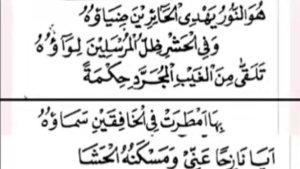 هُوَ النُّورُ يَهْدِى الْحَائِرِيْنَ ضِيَاؤُهُ
وَفِى الْحَشْرِ ظِلُّ الْمُرْسَلِيْنَ لِوَاؤُهُ
تَلَقّٰى مِنَ الْغَيْبِ الْمُجَرَّدِ حِكْمَةً
بِهَا اَمْطَرَتْ فِى الْخَافِقَيْنِ سَمَاؤُهُ
اَيَا نَازِحًا عَنِّىْ وَمَسْكَنُهُ الْحَشَا